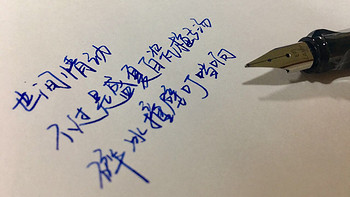 世间情动
不过是盛夏白瓷梅子汤
碎冰撞壁叮当响